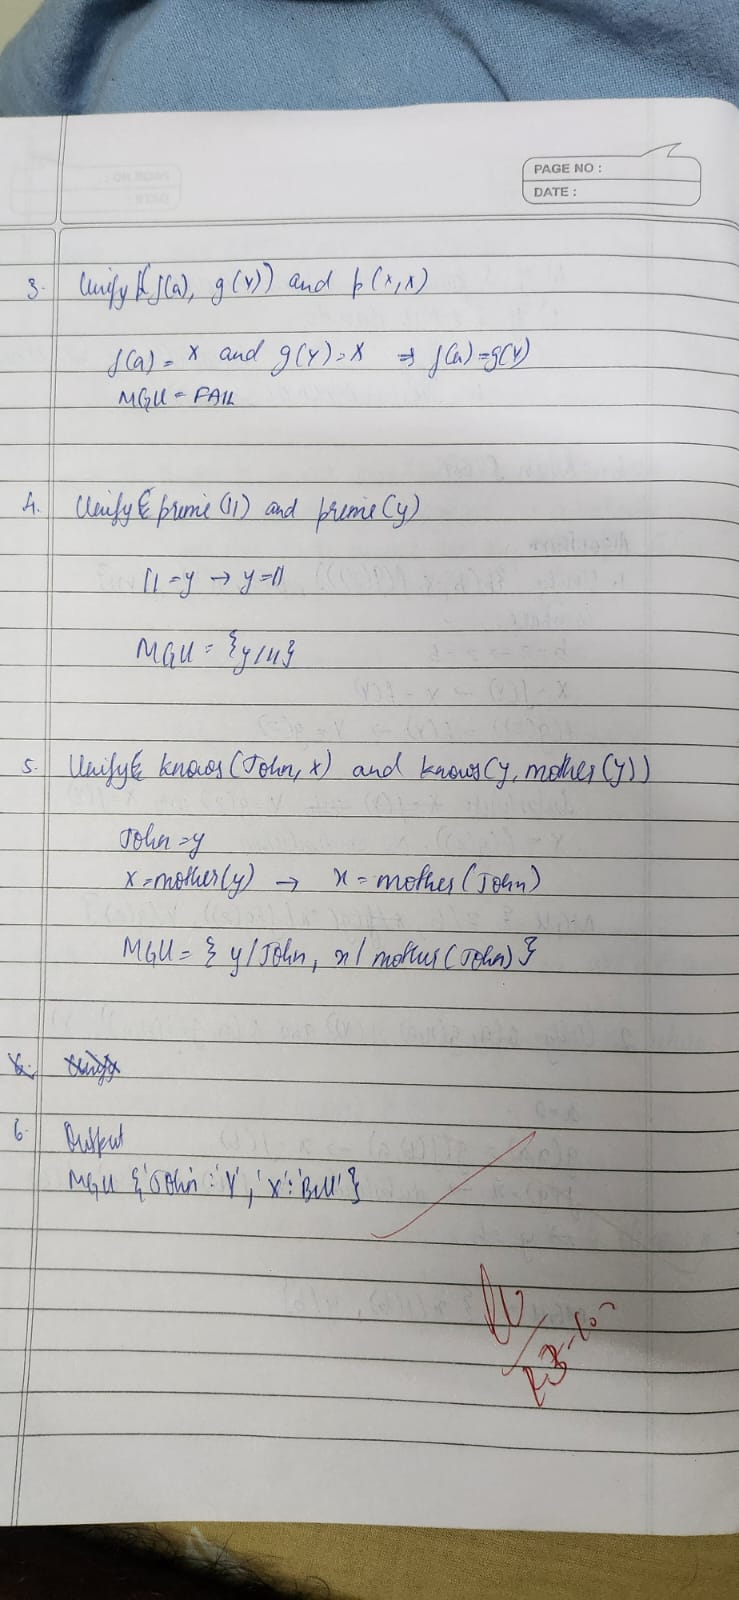 PAGE NO :
DATE :
3. Unify {f(a), g(Y)) and p(X,X)
f(a) = X and g(Y)=X ⇒ f(a)=g(Y)
MGU = FAIL
4. Unify { prime (11) and prime(y)
11=y → y=11
MGU = {y/11}
5. Unify { knows (John, x) and knows(y, mother(y))
John=y
x=mother(y) → x = mother(John)
MGU = { y/John, x/ mother(John) }
6. Unify
6. Output
MGU {'John': 'Y', 'X': 'Bill' }